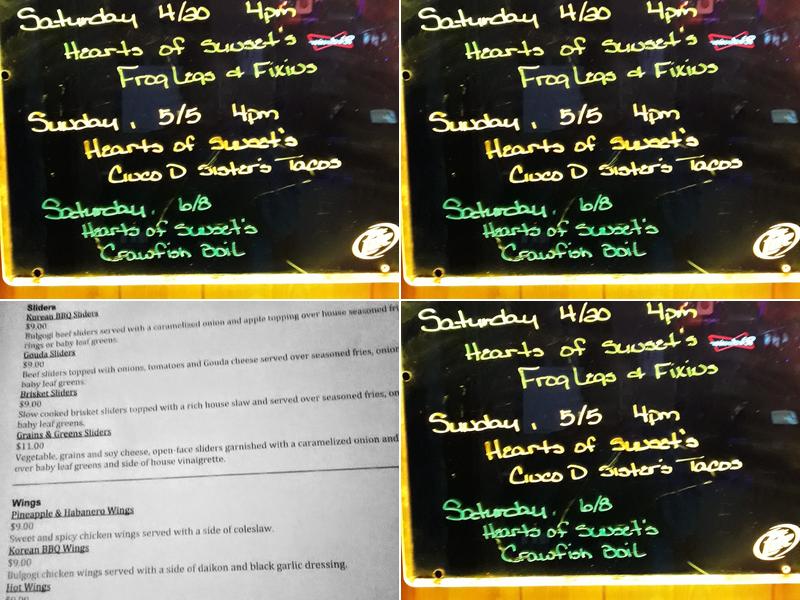 Saturday 4/20 4pm
Hearts of Sunset's
Frog Legs & Fixins
Sunday, 5/5 4pm
Hearts of Sunset's
Cinco D Sister's Tacos
Saturday. 6/8
Hearts of Sunset's
Crawfish Boil
Saturday 4/20 4pm
Hearts of Sunset's
Frog Legs & Fixins
Sunday, 5/5 4pm
Hearts of Sunset's
Cinco D Sister's Tacos
Saturday. 6/8
Hearts of Sunset's
Crawfish Boil
Sliders
Korean BBQ Sliders
$9.00
Bulgogi beef sliders served with a caramelized onion and apple topping over house seasoned
rings or baby leaf greens.
Gouda Sliders
$9.00
Beef sliders topped with onions, tomatoes and Gouda cheese served over seasoned fries, onion
baby leaf greens.
Brisket Sliders
$9.00
Slow cooked brisket sliders topped with a rich house slaw and served over seasoned fries,
baby leaf greens.
Grains & Greens Sliders
$11.00
Vegetable, grains and soy cheese, open-face sliders garnished with a caramelized onion and
over baby leaf greens and side of house vinaigrette.
Wings
Pineapple & Habanero Wings
$9.00
Sweet and spicy chicken wings served with a side of coleslaw.
Korean BBQ Wings
$9.00
Bulgogi chicken wings served with a side of daikon and black garlic dressing.
Hot Wings
Saturday 4/20 4pm
Hearts of Sunset's
Frog Legs & Fixins
Sunday, 5/5 4pm
Hearts of Sunset's
Cinco D Sister's Tacos
Saturday. 6/8
Hearts of Sunset's
Crawfish Boil